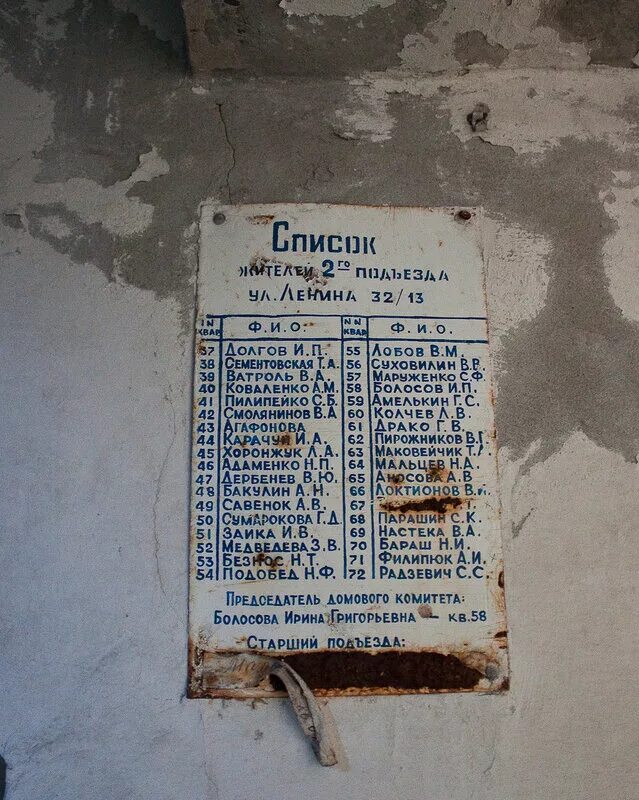 Список
жителей 2го подъезда
ул. Ленина 32/13
NN КВАР. Ф.И.О. NN КВАР. Ф.И.О.
37 Долгов И.П. 55 Лобов В.М.
38 Сементовская Т.А. 56 Суховилин В.В.
39 Ватроль В.А. 57 Маруженко С.Ф.
40 Коваленко А.М. 58 Болосов И.П.
41 Пилипейко С.Б. 59 Амелькин Г.С.
42 Смолянинов В.А 60 Колчев Л.В.
43 Агафонова 61 Драко Г.В.
44 Карачун И.А. 62 Пирожников В.Г.
45 Хоронжук Л.А. 63 Маковейчик Т.Л
46 Адаменко Н.П. 64 Мальцев Н.А.
47 Дербенев В.Ю. 65 Аносова А.В
48 Бакулин А.Н. 66 Локтионов В.И.
49 Савенок А.В. 67
50 Сумарокова Г.Д. 68 Парашин С.К.
51 Заика И.В. 69 Настека В.А.
52 Медведева З.В. 70 Бараш Н.И.
53 Безнос Н.Т. 71 Филипюк А.И.
54 Подобед Н.Ф. 72 Радзевич С.С.
Председатель домового комитета:
Болосова Ирина Григорьевна – кв.58
Старший подъезда: